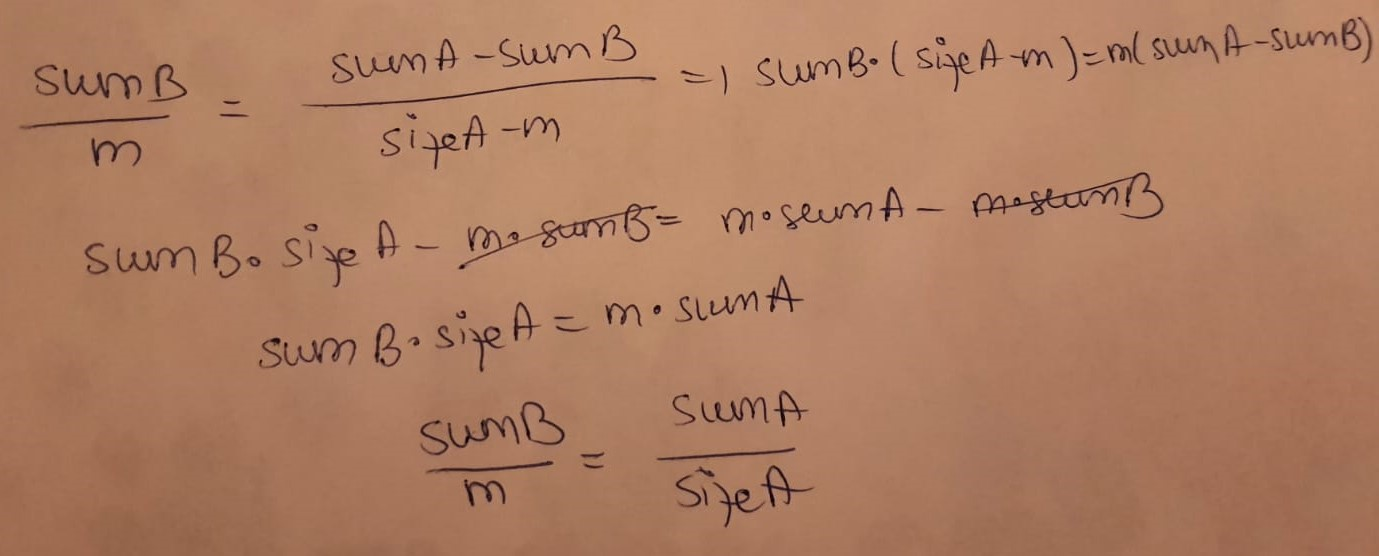 sumB/m = (sumA - sumB)/(sizeA - m) => sumB·(sizeA-m)=m(sumA-sumB)
sumB·sizeA - m·sumB = m·sumA - m·sumB
sumB·sizeA = m·sumA
sumB/m = sumA/sizeA